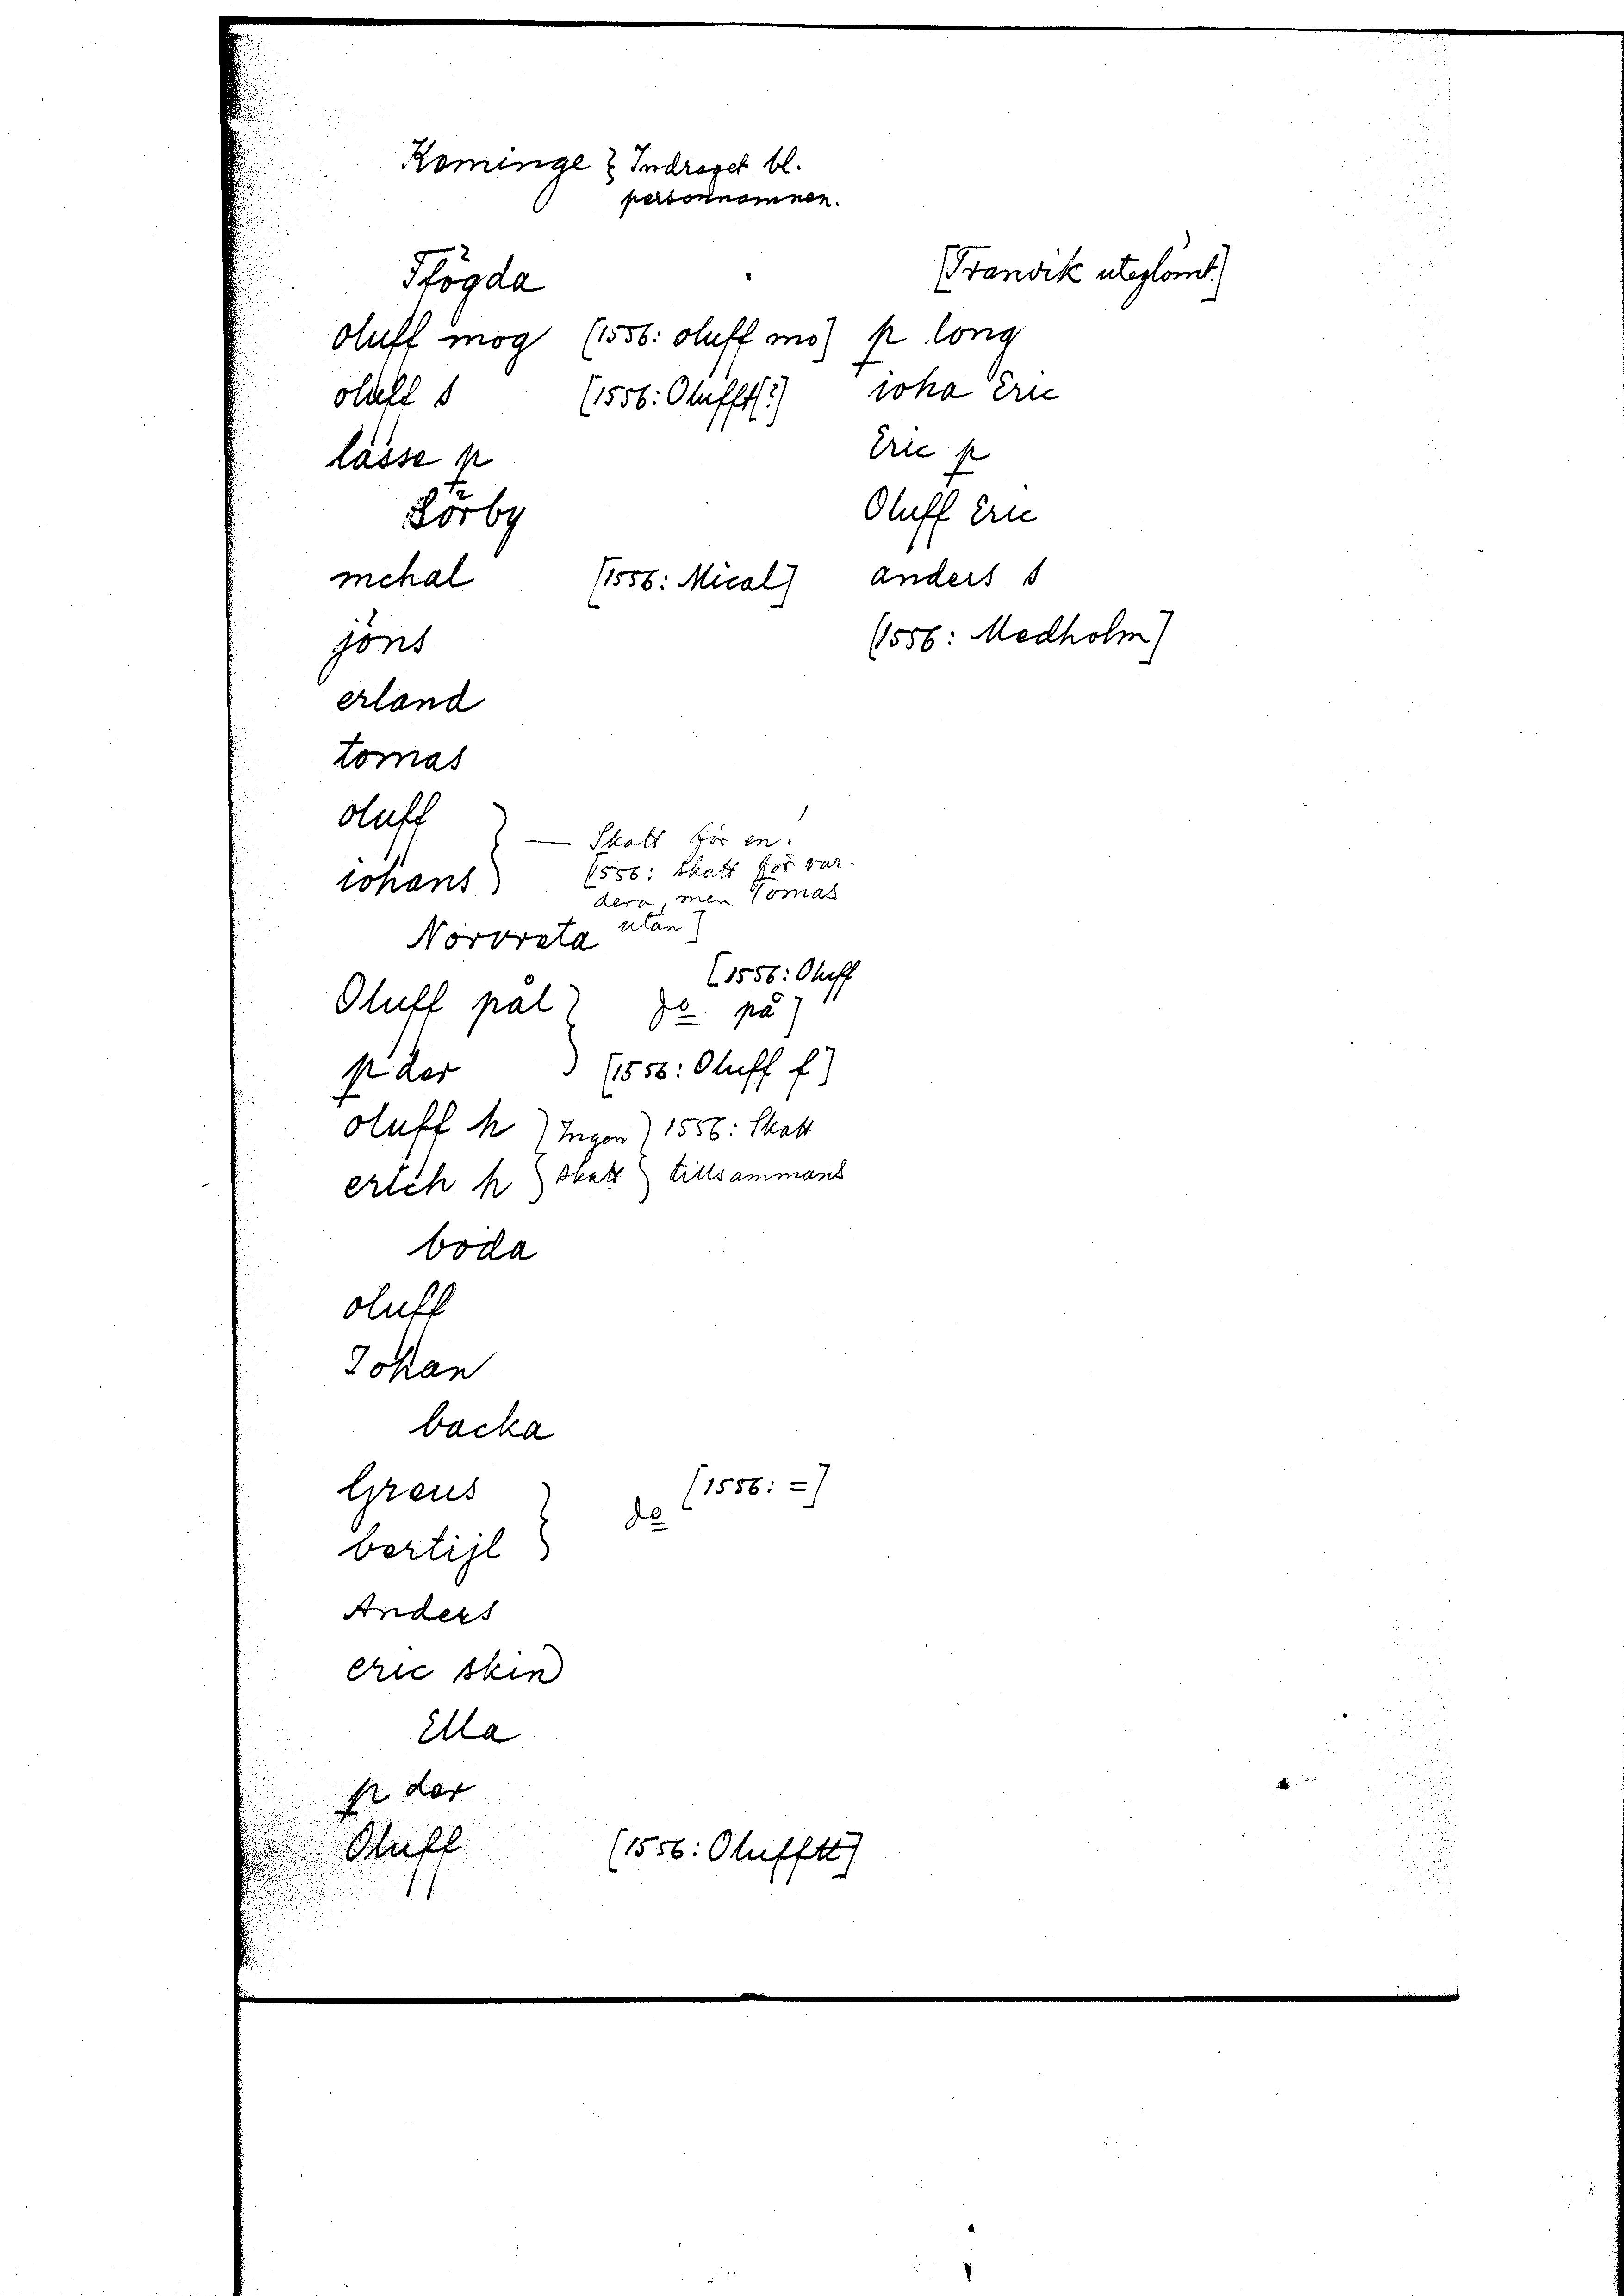 Keminge } Indraget bl.
personnamnen.
Flögda
oluff mog (1556: oluff mo)
oluff s (1556: Olufft?)
lasse p
Sörby
mchal (1556: Mical)
jöns
erland
tomas
oluff
iohans
— Skatt för en.
(1556: Skatt för var-
dera, men Tomas
utan)
Nörvreta
[1556: Oluff
Oluff pål } do på]
p der } (1556: Oluff f)
oluff h } Ingen } 1556: Skatt
erich h } skatt } tillsammans
boda
oluff
Johan
backa
Greus
bertijl } do [1556: =]
Anders
eric skin
Ella
p der
Oluff (1556: Olufftt)
(Tranvik uteglömt.)
p long
ioha Eric
Eric p
Oluff Eric
anders s
(1556: Medholm)